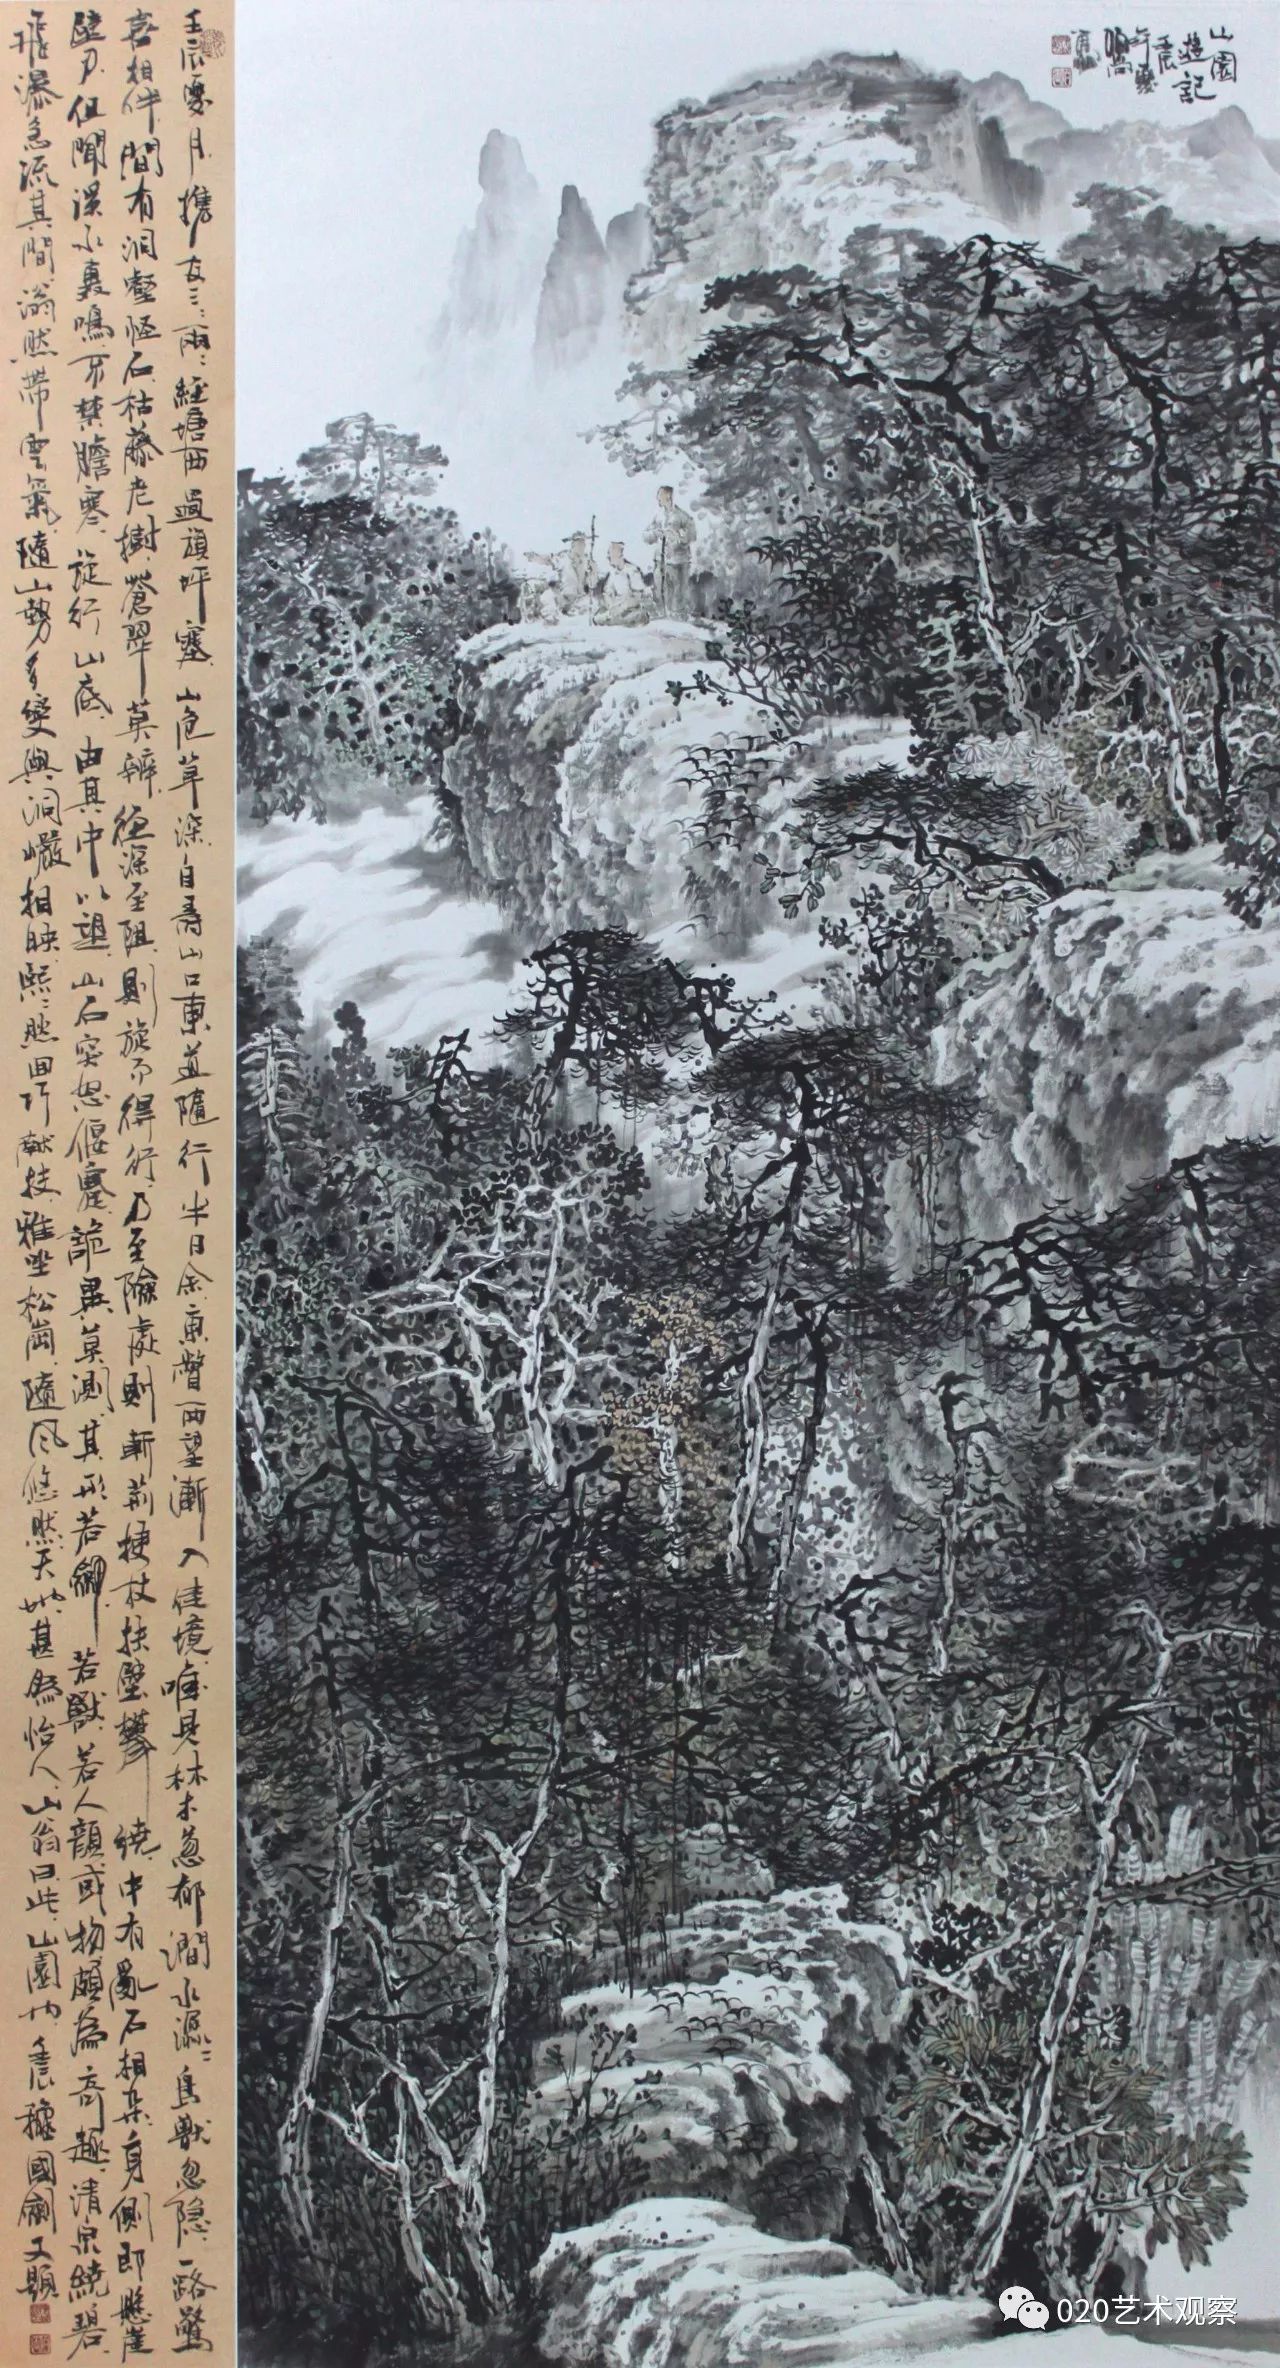 山園
遊記
壬辰
年夏
壬辰夏月携友三兩經塘西過頭坪寨山色草深自尋山口東道隨行半日余東瞥西望漸入佳境唯見林木蔥郁澗水濕濕鳥獸忽隐一路驚
喜相伴間有洞壑怪石枯藤老樹蒼翠莫辨徑深至阻則旋而得行乃至險處則斬荊梗杖扶壁攀繞中有亂石相夾身側即懸崖
壁刀但聞溪水轟鳴不禁膽寒旋行山底由其中以望山石突怒偃蹇詭異莫測其形若禦若獸若人顏或物頗為奇趣清泉繞碧
飛瀑急流其間滃然帶雲氣隨山勢多變與洞巖相映熙熙然回巧献技雅坐松崗隨風悠然天地甚為怡人山翁曰此山園也壬辰穆國劍又題
020艺术观察